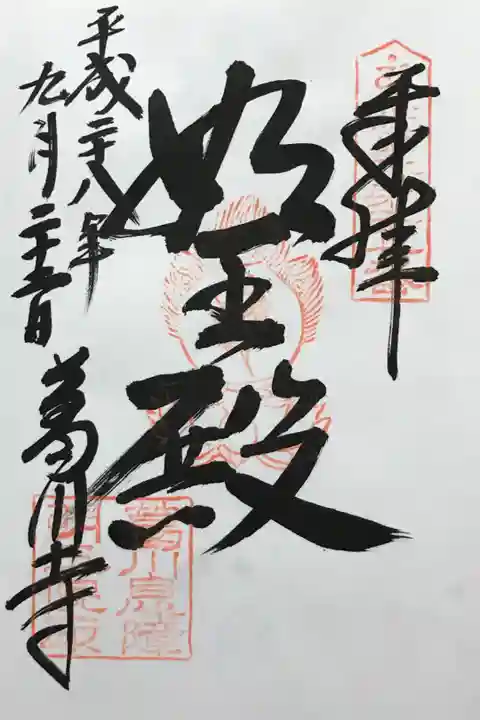 奉拝
明王殿
平成二十八年
九月二十五日
葛川寺
葛川息障